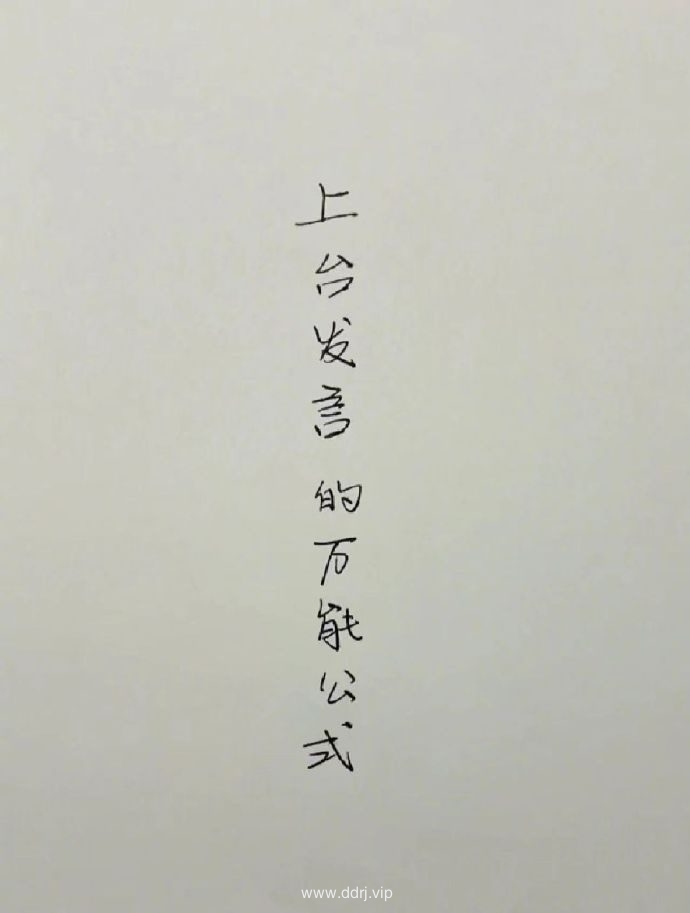 上台发言的万能公式
www.ddrj.vip